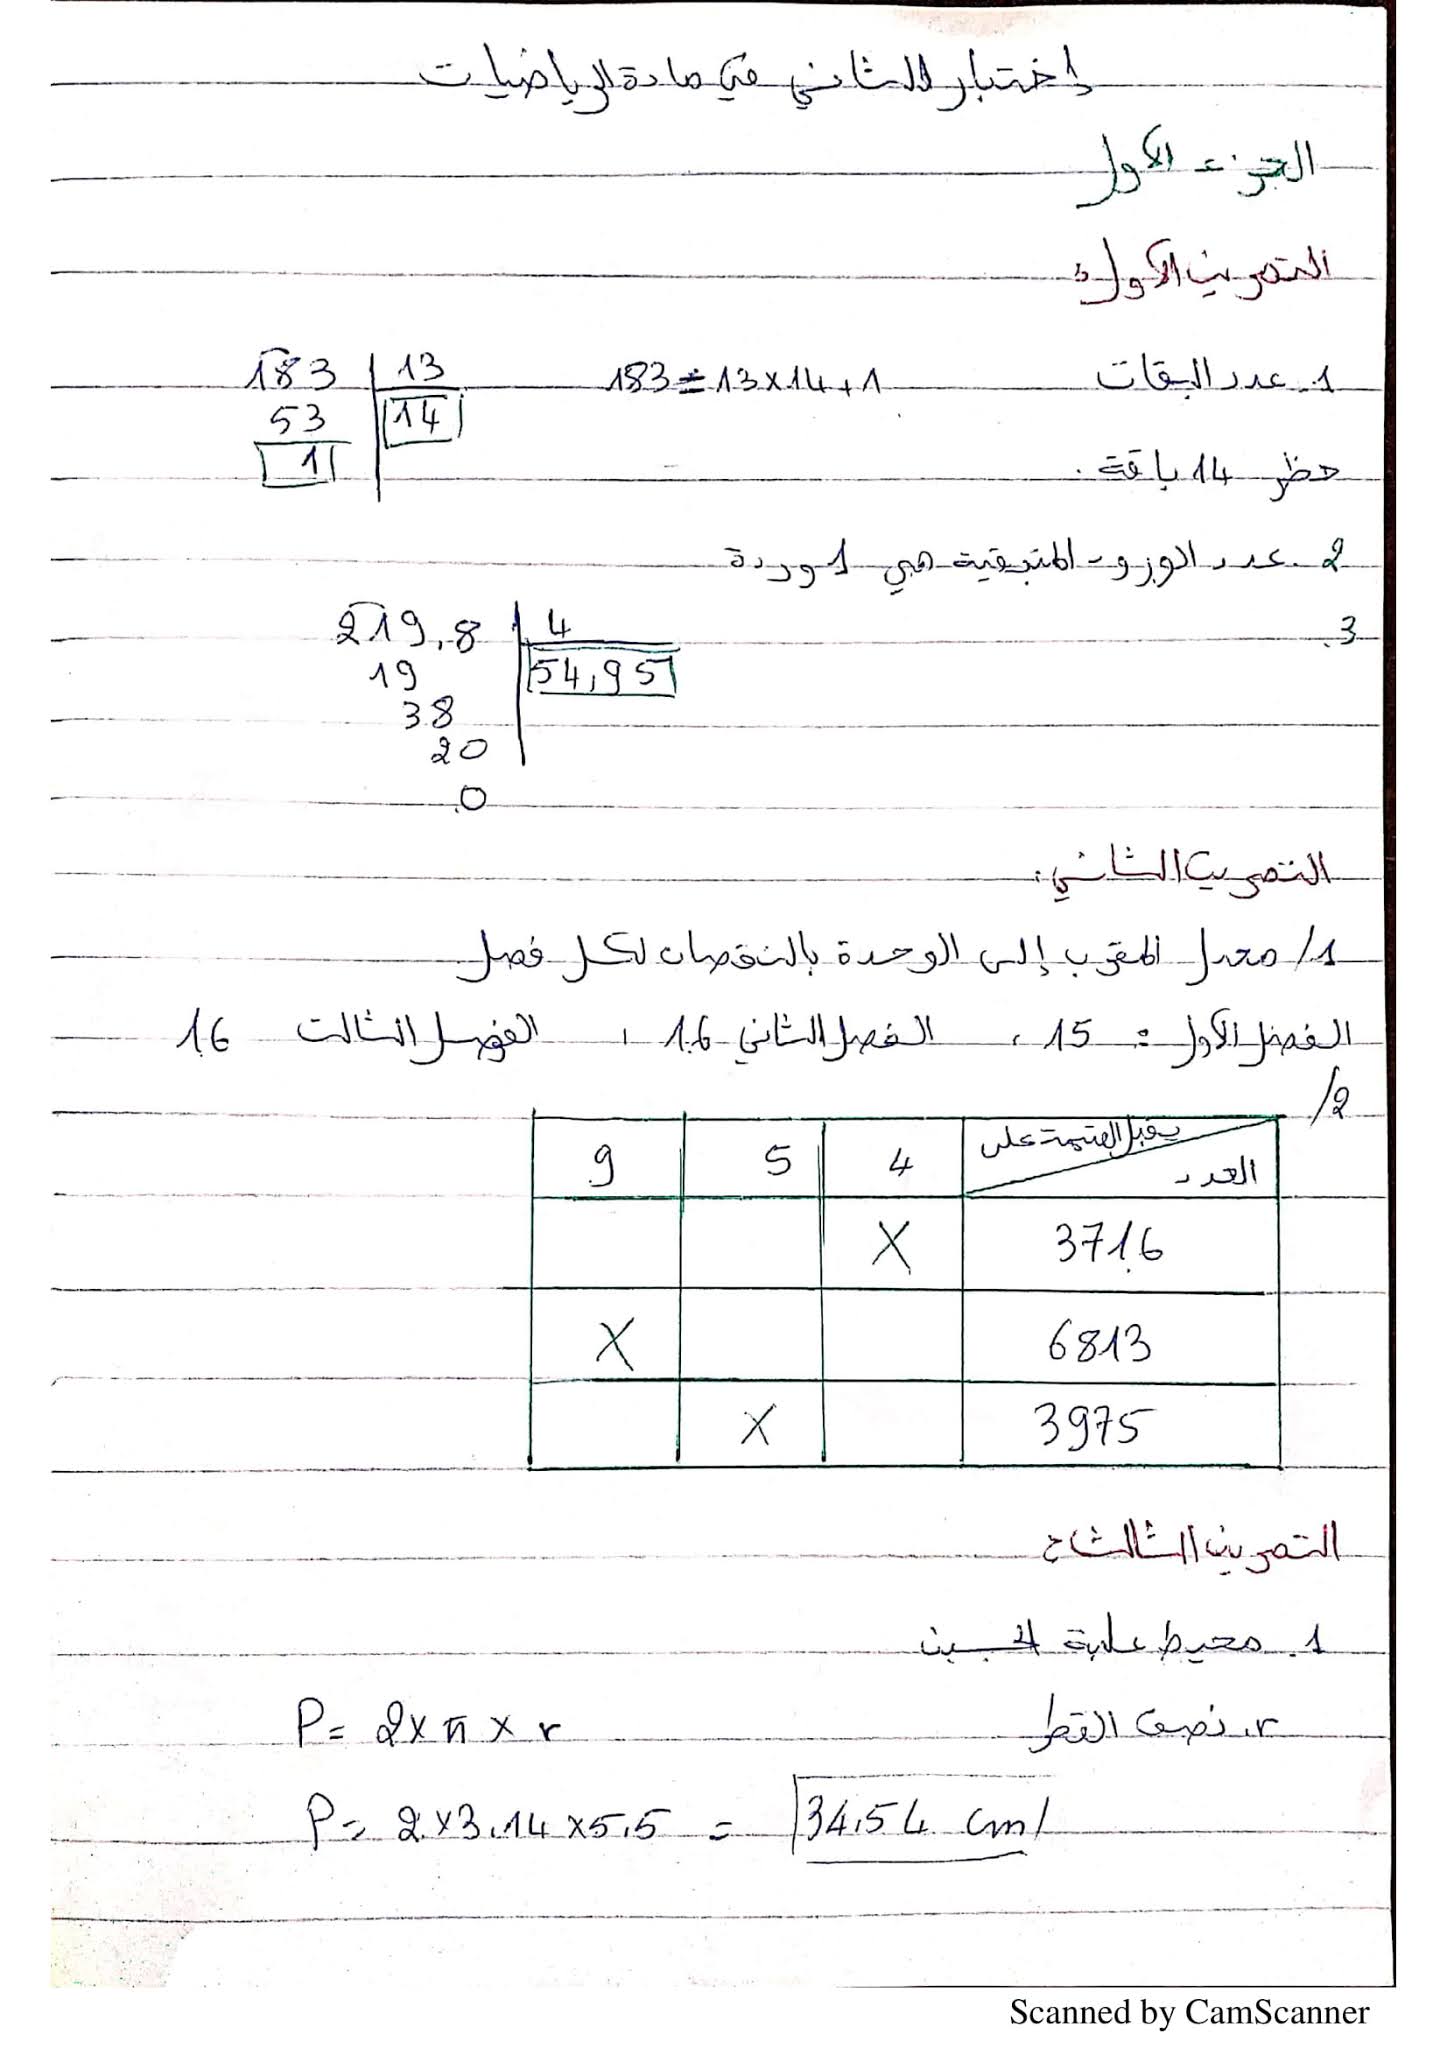 إختبار الثاني في مادة الرياضيات
الجزء الأول
التمرين الأول:
1. عدد البقات 183 = 13 x 14 + 1
183 | 13
53 14
1
14 باقة.
2. عدد الورود المتبقية هي 1 وردة
3.
219,8 | 4
19 54,95
38
20
0
التمرين الثاني:
1/ معدل المقرب إلى الوحدة بالنقصان لكل فصل
الفصل الأول: 15، الفصل الثاني 16، الفصل الثالث 16
2/
يقبل القسمة على 4 5 9
العدد
3716 X
6813 X
3975 X
التمرين الثالث:
1. محيط علبة الجبن
r. نصف القطر P = 2 x π x r
P = 2 x 3.14 x 5,5 = 34,54 cm
Scanned by CamScanner